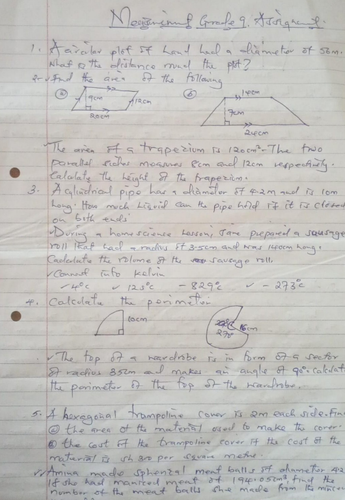 Measurement Grade 9. Assignment.
1. A circular plot of land had a diameter of 50m.
What is the distance round the plot?
2. Find the area of the following
a
9cm
12cm
20cm
b
14cm
7cm
24cm
The area of a trapezium is 120cm². The two
parallel sides measures 8cm and 12cm respectively.
Calculate the height of the trapezium.
3. A cylindrical pipe has a diameter of 4.2m and is 10m
long. How much liquid can the pipe hold if it is closed
on both ends
During a homescience lesson, Jane prepared a sausage
roll that had a radius of 3.5cm and was long.
Calculate the volume of the sausage roll.
Convert into Kelvin
4°C 123°C -829°C -273°C
4. Calculate the perimeter
10cm
270°
The top of a wardrobe is in form of a sector
of radius 35cm and makes an angle of 90°. calculate
the perimeter of the top of the wardrobe.
5. A hexagonal trampoline cover is 2m each side. Find
a the area of the material used to make the cover.
b the cost of the trampoline cover if the cost of the
material is sh 30 per square metre.
Amina made spherical meat balls of diameter
If she had minced meat of 194.05cm³, find the
number of the meat balls she made from the